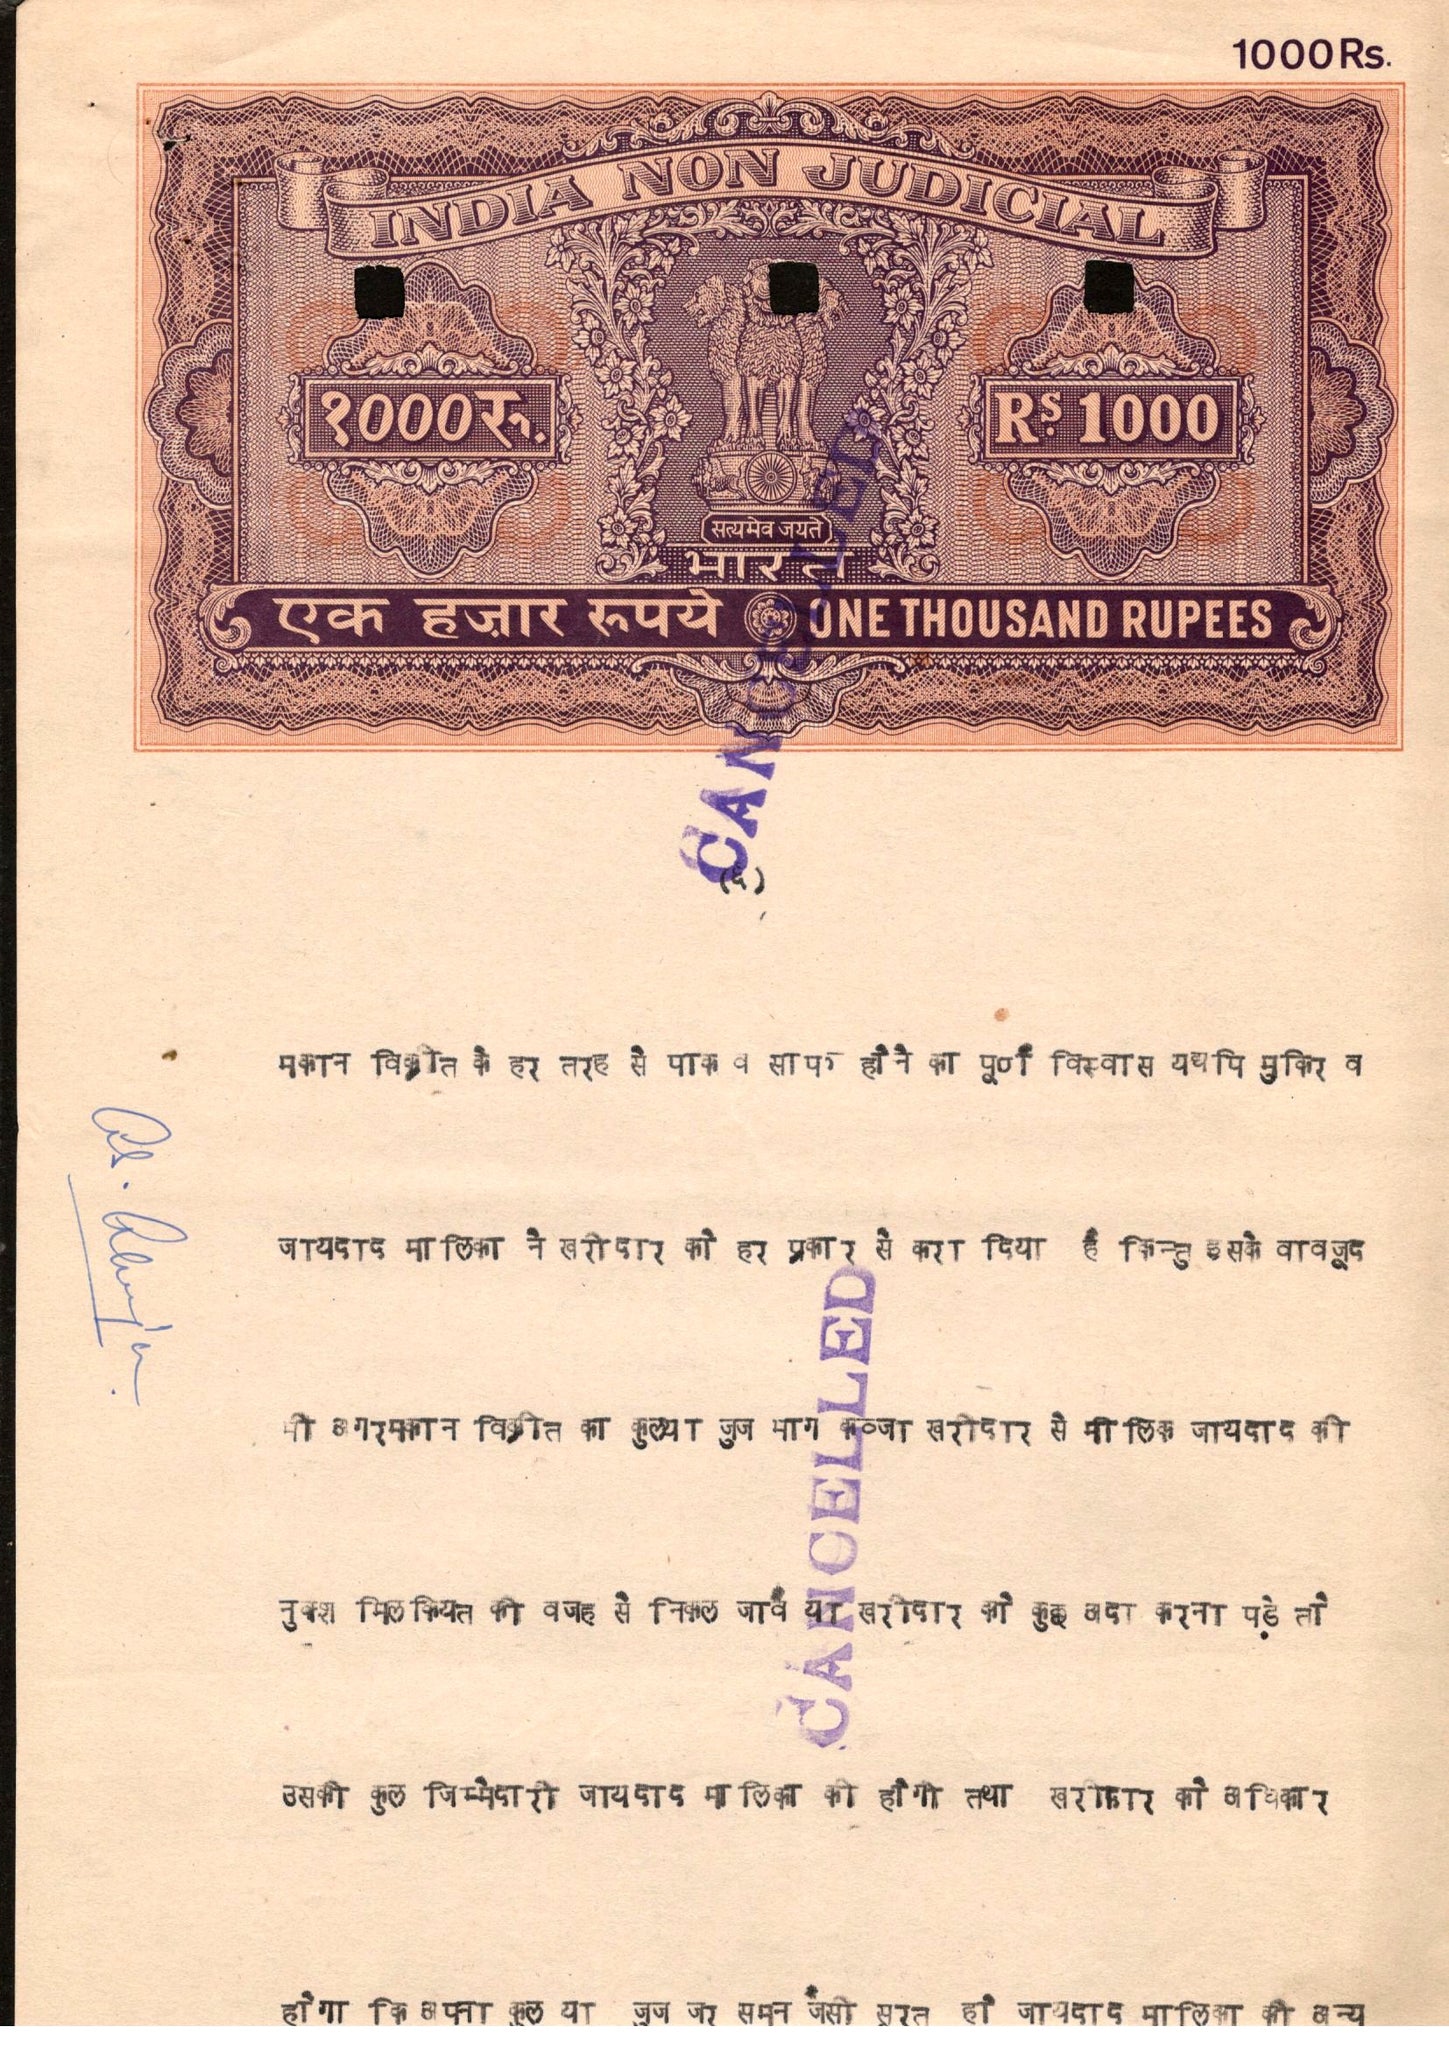 1000Rs.
INDIA NON JUDICIAL
१000 रु.
Rs. 1000
सत्यमेव जयते
भारत
एक हज़ार रूपये
ONE THOUSAND RUPEES
CANCELLED
(६)
मकान विक्रीत के हर तरह से पाक व साफ होने का पूर्ण विस्वास यद्यपि मुकिर व
जायदाद मालिका ने खरीदार को हर प्रकार से करा दिया है किन्तु इसके वावजूद
भी अगरमकान विक्रीत का कुल्या जुज भाग कव्जा खरीदार से मालिक जायदाद की
CANCELLED
नुक्श मिलकियत की वजह से निकल जावे या खरीदार को कुछ अदा करना पड़े तो
उसकी कुल जिम्मेदारी जायदाद मालिका की होगी तथा खरीदार को अधिकार
होगा कि अपना कुल या जुज जर समन जैसी सूरत हो जायदाद मालिका की अन्य